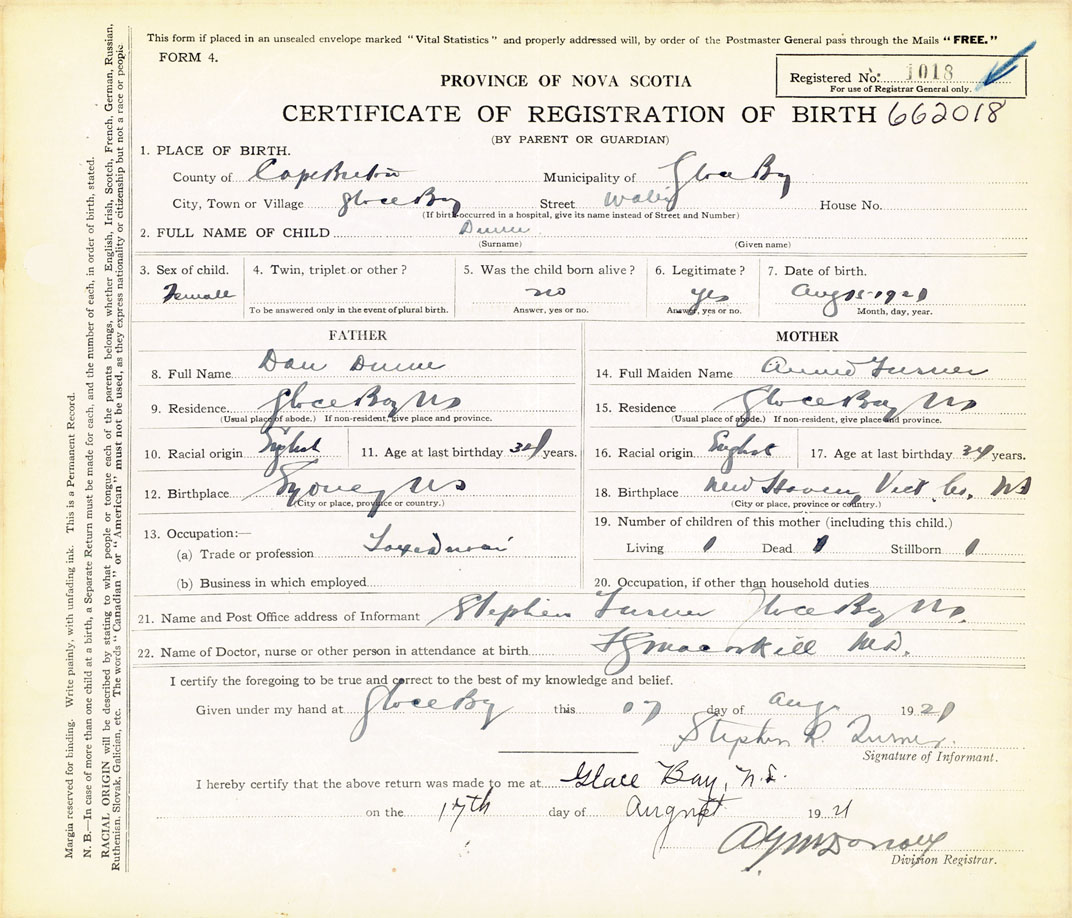 This form if placed in an unsealed envelope marked "Vital Statistics" and properly addressed will, by order of the Postmaster General pass through the Mails "FREE."
FORM 4.
Registered No. 1018
For use of Registrar General only.
PROVINCE OF NOVA SCOTIA
CERTIFICATE OF REGISTRATION OF BIRTH 662018
(BY PARENT OR GUARDIAN)
1. PLACE OF BIRTH.
County of Cape Breton Municipality of Glace Bay
City, Town or Village Glace Bay Street House No.
(If birth occurred in a hospital, give its name instead of Street and Number)
2. FULL NAME OF CHILD Dunn
(Surname) (Given name)
3. Sex of child. 4. Twin, triplet or other? 5. Was the child born alive? 6. Legitimate? 7. Date of birth.
Female no yes Aug 15-1921
To be answered only in the event of plural birth. Answer, yes or no. Answer, yes or no. Month, day, year.
FATHER MOTHER
8. Full Name Dan Dunn 14. Full Maiden Name Annie Turner
9. Residence. Glace Bay NS 15. Residence Glace Bay NS
(Usual place of abode.) If non-resident, give place and province. (Usual place of abode.) If non-resident, give place and province.
10. Racial origin English 11. Age at last birthday years. 16. Racial origin English 17. Age at last birthday 34 years.
12. Birthplace Sydney NS 18. Birthplace New Haven Vict. Co. NS
(City or place, province or country.) (City or place, province or country.)
13. Occupation:— 19. Number of children of this mother (including this child.)
(a) Trade or profession Living 1 Dead 1 Stillborn 1
(b) Business in which employed 20. Occupation, if other than household duties
21. Name and Post Office address of Informant Stephen Turner Glace Bay NS.
22. Name of Doctor, nurse or other person in attendance at birth MacAskill MD.
I certify the foregoing to be true and correct to the best of my knowledge and belief.
Given under my hand at Glace Bay this 17 day of Aug 1921
Stephen R Turner.
Signature of Informant.
I hereby certify that the above return was made to me at Glace Bay, N.S.
on the 17th day of August 1921
McDonald
Division Registrar.
Margin reserved for binding. Write plainly, with unfading ink. This is a Permanent Record.
N. B.—In case of more than one child at a birth, a Separate Return must be made for each, and the number of each, in order of birth, stated.
RACIAL ORIGIN will be described by stating to what people or tongue each of the parents belongs, whether English, Irish, Scotch, French, German, Russian,
Ruthenian, Slovak, Galician, etc. The words "Canadian" or "American" must not be used, as they express nationality or citizenship but not a race or people